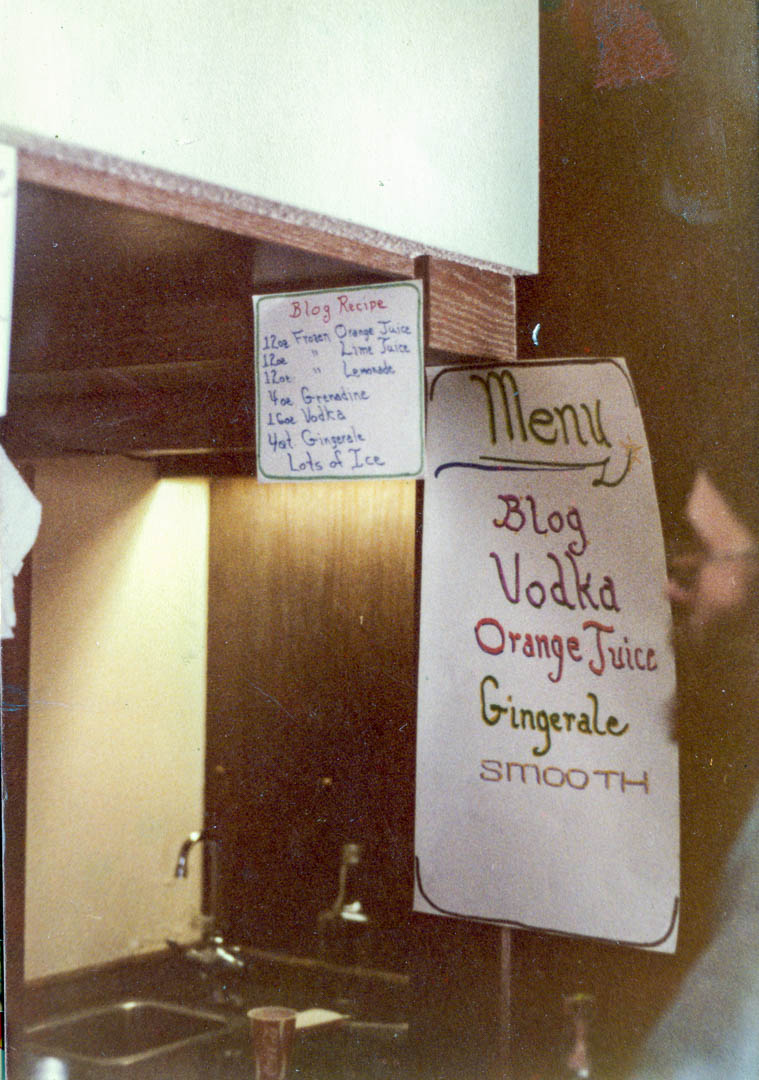 Blog Recipe
12oz Frozen Orange Juice
12oz " Lime Juice
12oz " Lemonade
4oz Grenadine
16oz Vodka
4qt Gingerale
Lots of Ice
Menu
Blog
Vodka
Orange Juice
Gingerale
SMOOTH